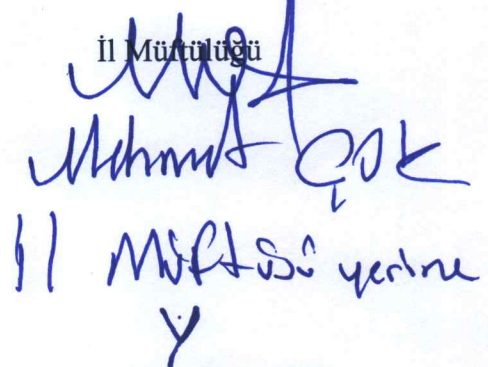 İl Müftülüğü
Mehmet ÇOK
İl Müftüsü yerine
Y